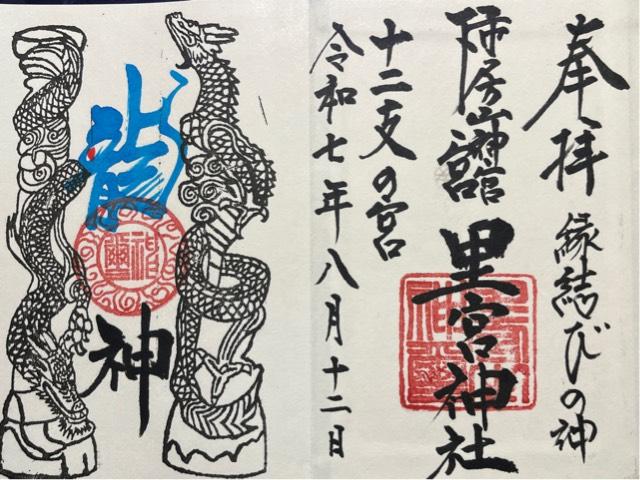 奉拝 縁結びの神
里宮神社
十二支の宮
令和七年八月十二日
龍
神